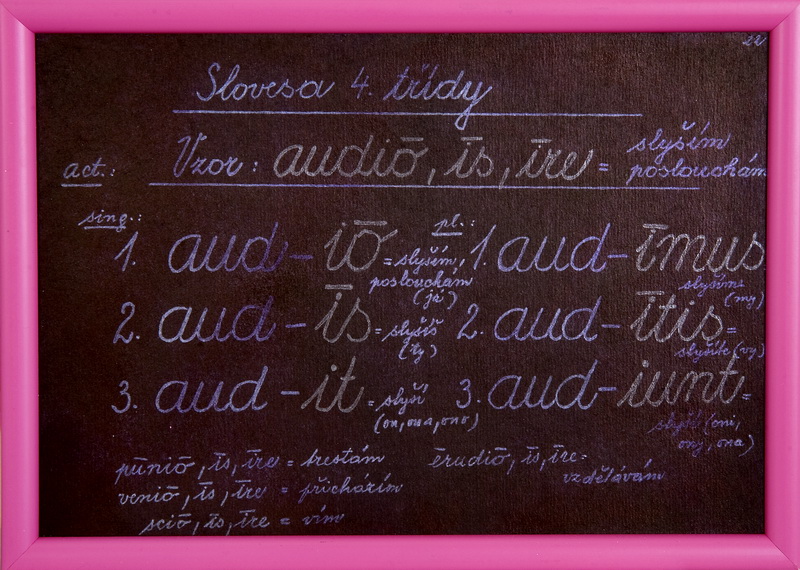 22
Slovesa 4. třídy
act.: Vzor: audiō, īs, īre = slyším
poslouchám
sing.:
1. aud - iō = slyším,
poslouchám
(já)
2. aud - īs = slyšíš
(ty)
3. aud - it = slyší
(on, ona, ono)
pl.:
1. aud - īmus
slyšíme
(my)
2. aud - ītis =
slyšíte (vy)
3. aud - iunt =
slyší (oni,
ony, ona)
pūniō, īs, īre = trestám
veniō, īs, īre = přicházím
sciō, īs, īre = vím
ērudiō, īs, īre =
vzdělávám